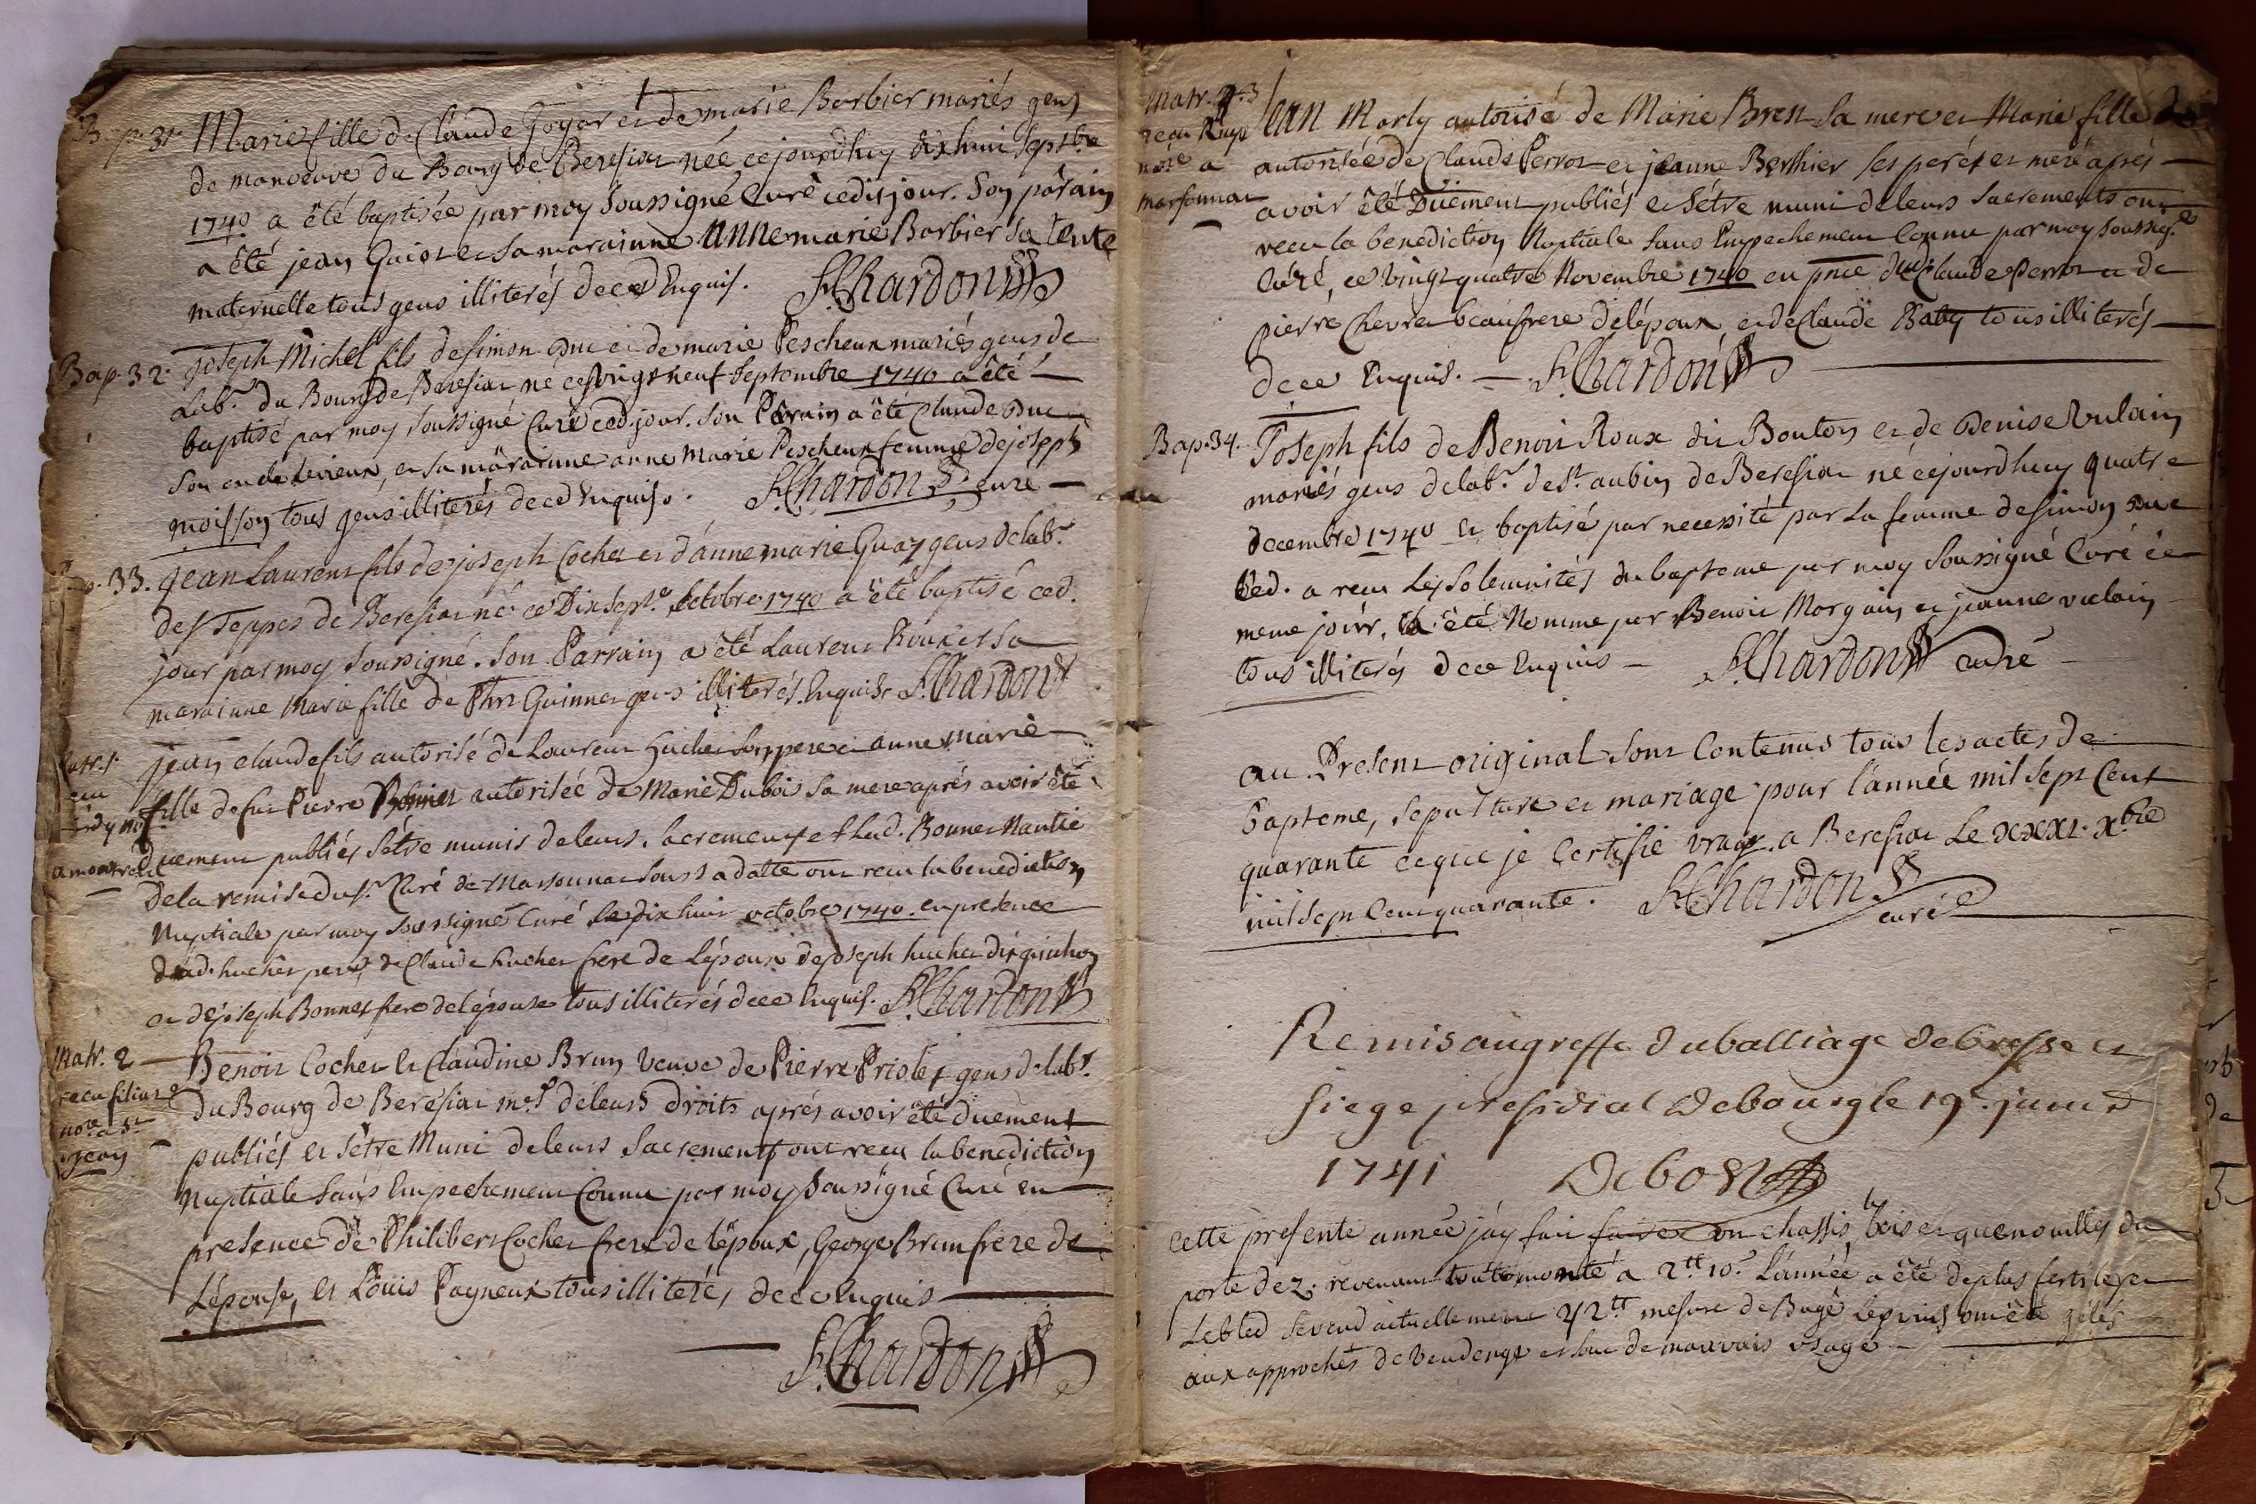 B. p. 31. Marie fille de Claude Goyar et de marie Barbier mariés gens
de manoeuvre du Bourg de Beresiar née cejourdhuy dix huit Septbre
1740 a été baptisée par moy soussigné Curé cedit jour. Son parain
a été jean Guiot et sa marainne Annemarie Barbier sa tente
maternelle tous gens illiterés dece Enquis. Chardon
Bap. 32. joseph Michel fils de simon Duc et de marie Pescheux mariés gens de
Labr. du Bourg de Beresiar né ce vingt neuf Septembre 1740 a été
baptisé par moy soussigné Curé ced. jour. Son Parain a été Claude Duc
Son oncle, et sa marainne anne Marie Pescheux femme de joseph
moisson tous gens illiterés deced Enquis. Chardon curé
33. jean Laurent fils de joseph Cocher et d'anne marie Guay gens delabr
des Teppes de Beresiar né ce Dix Sept octobre 1740 a été baptisé ced.
jour par moy soussigné. Son Parrain a été Laurent Roux et sa
marainne Marie fille de Guinner gens illiterés Enquis Chardon
jean claude fils autorisé de Laurent hucher son pere et anne marie
fille de feu Pierre autorisée de Marie Dubois sa mere aprés avoir été
duement publiés sétre munis de leurs sacrements
dela remise du sr. Curé de Marsonnar sous sa datte ont recu la benediction
Nuptiale par moy soussigné Curé le dix huit octobre 1740. en presence
dud. hucher pere, de Claude hucher frere de Lépoux de joseph hucher dit
et de joseph Bonnet frere delépouse tous illiterés dece Enquis. Chardon
Matr. 2
recu
nore a St
jean
Benoit Cocher et Claudine Brun veuve de Pierre Priolet gens delabr.
du Bourg de Beresiar de leurs droits aprés avoir été duement
publiés et sétre Muni deleurs Sacrements ont recu la benediction
Nuptiale sans Empechement Connu par moy Soussigné Curé en
presence de Philibert Cocher frere de lépoux, George Brun frere de
Lépouse, et Louis Pagneux tous illiterés dece Enquis
Chardon
Matr. 3
recu
nore a
marsonnar
Jean Morly autorisé de Marie Bren sa mere et Marie fille de
autorisée de Claude Perros et jeanne Berthier ses perés et meré aprés
avoir été Düement publiés et Sétre muni deleurs sacrements ont
recu la benediction Nuptiale sans Empechement Connu par moy soussigné
Curé, ce vingt quatre Novembre 1740 en pnce dud Claude Perros et de
pierre Chevret beaufrere delépoux et de Claude Baby tous illiterés
dece Enquis. Chardon
Bap. 34. Joseph fils de Benoit Roux dit Bouton et de Denise Vulain
mariés gens delabr. de st. aubin de Beresiar né cejourdhuy quatre
decembre 1740 et baptisé par necessité par La femme de simon Duc
ced. a recu Les Solemnités du bapteme par moy Soussigné Curé ce
meme jour, Il a été Nomme par Benoit Morgain et jeanne vulain
tous illiterés dece Enquis Chardon curé
au Present original sont Contenus tous les actes de
bapteme, sepulture et mariage pour l'année mil sept Cent
quarante ceque je Certifie vray. a Beresiar Le XXXI. Xbre
mil Sept Cent quarante. Chardon
curé
Remis augreffe duballiage debresse et
siege presidial debourg le 19. janvr
1741 Debost
cette presente année j'ay fait faire un chassis bois et quenouilly du
porte de 2. revenant tout monté a 2tt 10s. L'année a été deplus fertiles et
Lebled Sevend actuellement 42tt mesure de Bagé les vins ont été gélés
aux approches de Vendenge et sont de mauvais usage